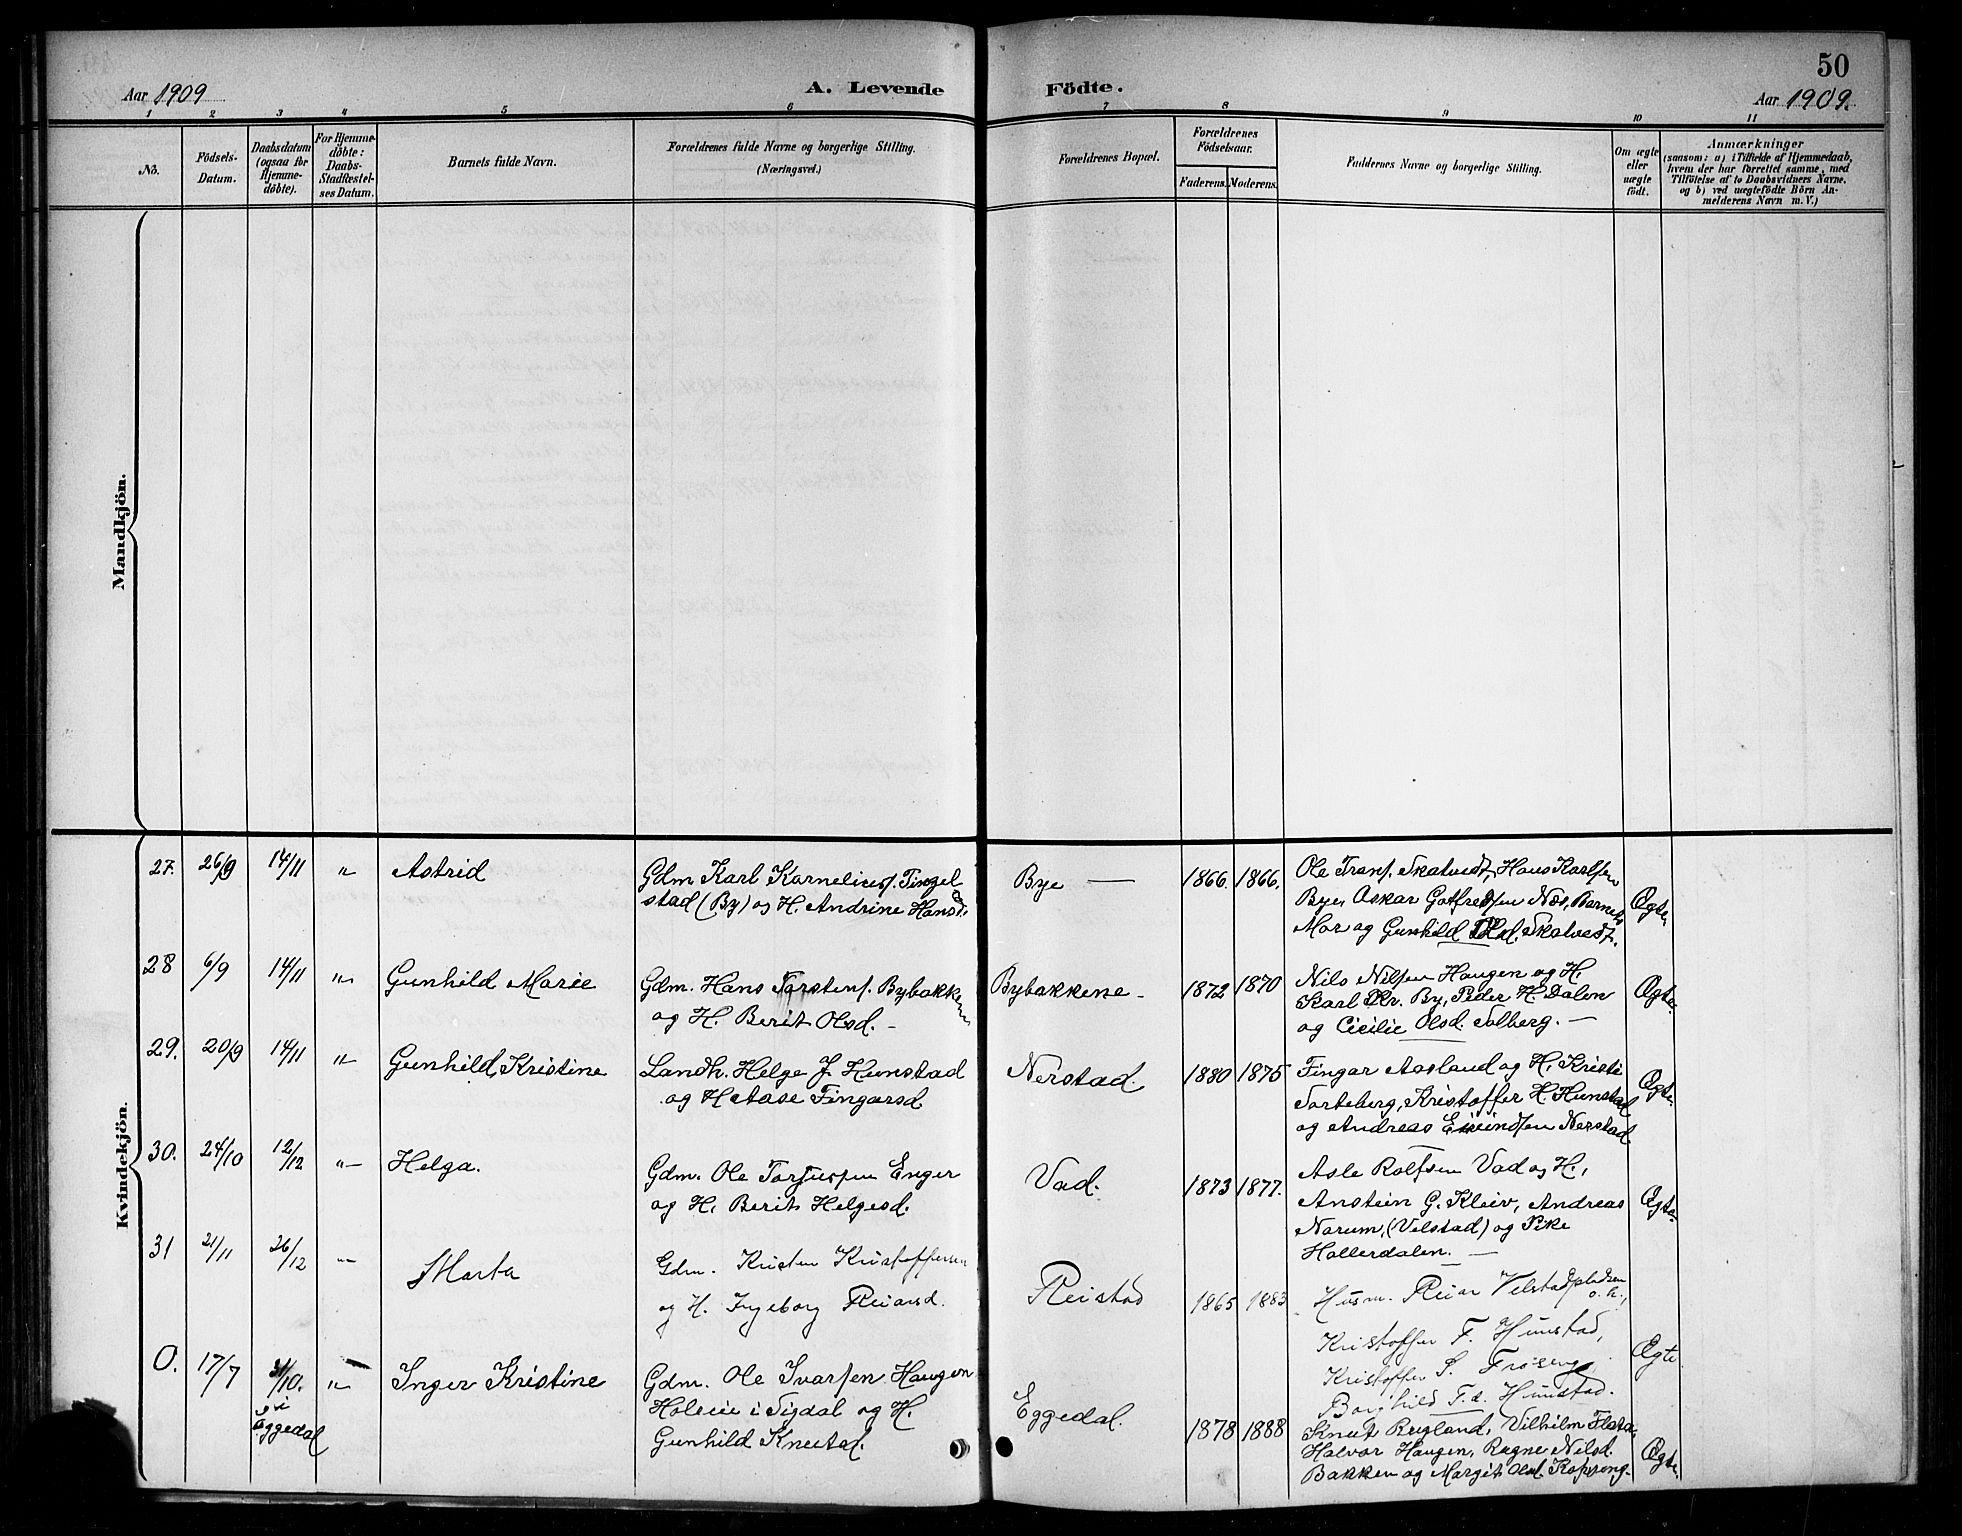 50
Aar 1909
A. Levende Födte.
Aar 1909.
1 2 3 4 5 6 7 8 9 10 11
No.
Födsels-
Datum.
Daabsdatum
(ogsaa for
Hjemme-
döbte).
For Hjemme-
döbte:
Daabs-
Stadfestel-
ses Datum.
Barnets fulde Navn.
Forældrenes fulde Navne og borgerlige Stilling.
(Næringsvei.)
Forældrenes Bopæl.
Forældrenes
Födselsaar.
Faderens.
Moderens.
Faddernes Navne og borgerlige Stilling.
Om ægte
eller
uægte
födt.
Anmærkninger
(saasom: a) i Tilfælde af Hjemmedaab,
hvem der har forrettet samme, med
Tilföielse af to Daabsvidners Navne.
og b) ved uægtefödte Börn An-
melderens Navn m. V.)
Mandkjön.
Kvindekjön.
27. 26/9 14/11 " Astrid
Gdm Karl Karneliusf. Tingel
stad (By) og H. Andrine Hansd.
Bye —
1866. 1866.
Ole Transf. Skatvedt, Hans Karlsen
Bye, Oskar Gotfredsen Næs, Barnets
Mor og Gunhild Skatvedt.
Ægte.
28 6/9 14/11 " Gunhild Marie
Gdm. Hans Torstensf. Bybakkene
og H. Berit Olsd. —
Bybakkene —
1872 1870
Nils Nilsen Haugen og H.
Karl Kr. By, Peder H. Dalen
og Cicilie Olsd. Solberg. —
Ægte.
29. 20/9 14/11 " Gunhild Kristine
Landh. Helge J. Hunstad
og H. Aase Fingarsd
Nerstad.
1880 1875
Fingar Aasland og H. Kristi
Torteberg, Kristoffer H. Hunstad
og Andreas Eivindsen Nerstad
Ægte.
30. 24/10 12/12 " Helga.
Gdm. Ole Torjussen Enger
og H. Berit Helgesd.
Vad.
1873 1877.
Asle Rolfsen Vad og H.,
Anstein G. Kleiv, Andreas
Narum, (Velstad) og Pike
Hollerdalen. —
Ægte.
31 21/11 26/12 " Marta
Gdm. Kristen Kristoffersen
og H. Ingeborg Reiarsd.
Reistad
1865 1883
Husm. Reiar Velstadpladsen
o. h.,
Kristoffer F. Hunstad,
Kristoffer S. Frøseng
Borghild F.d. Hunstad.
Ægte
0. 17/7 31/10. i Eggedal " Inger Kristine
Gdm. Ole Ivarsen Haugen
Holeie i Sigdal og H.
Gunhild Knutsd.
Eggedal.
1878 1888
Knut Bugland, Vilhilm Flata,
Halvor Haugen, Ragne Nilsd.
Bakken og Margit Olsd. Kopseng.
Ægte